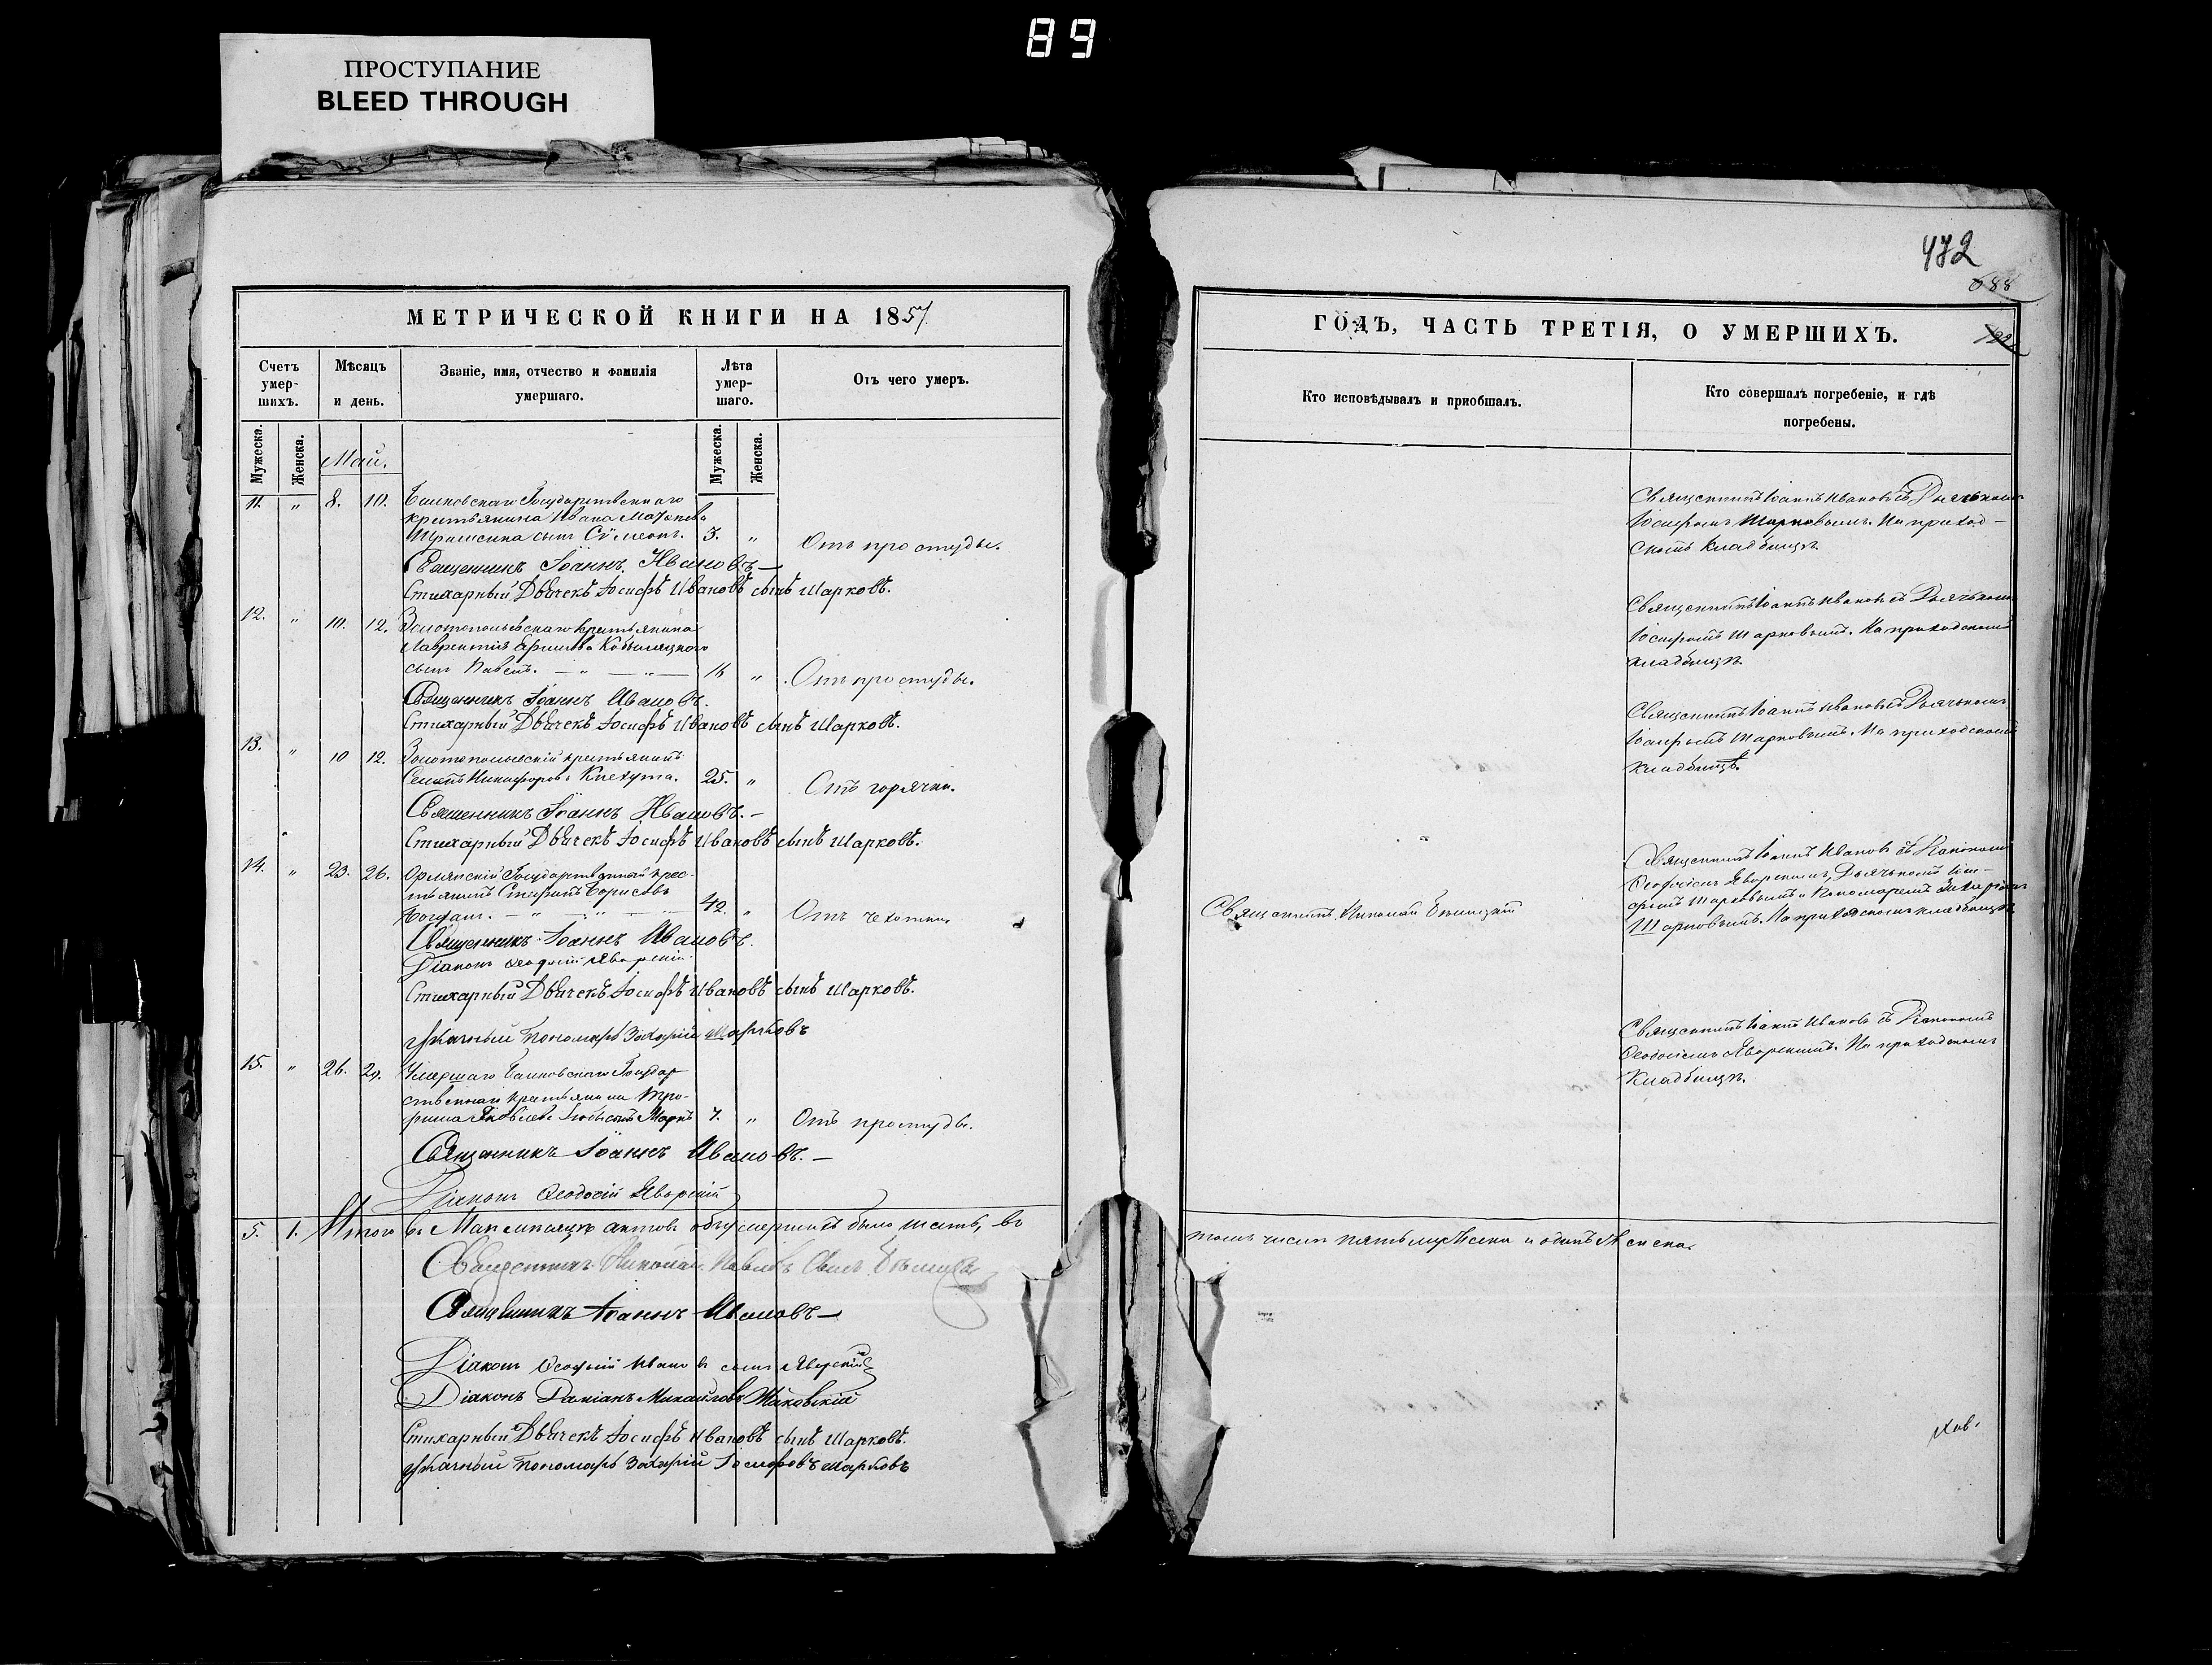 89
ПРОСТУПАНИЕ
BLEED THROUGH
472
688
МЕТРИЧЕСКОЙ КНИГИ НА 1857
Счетъ умер-шихъ.
Мѣсяцъ и день.
Званіе, имя, отчество и фамилія умершаго.
Лѣта умер-шаго.
Отъ чего умеръ.
Мужеска.
Женска.
Мужеска.
Женска.
Май.
11. " 8. 10. Государственнаго
крестьянина Ивана
сынъ Сѵмеонъ. 3. " Отъ простуды.
Священникъ Іоаннъ Ивановъ
Стихарный Дьячекъ Іосифъ Ивановъ сынъ Шарковъ.
12. " 10. 12. Золотопольскаго крестьянина
Лаврентія
сынъ Павелъ. " " Отъ простуды.
Священникъ Іоаннъ Ивановъ.
Стихарный Дьячекъ Іосифъ Ивановъ сынъ Шарковъ.
13. " 10 12. Золотопольскій крестьянинъ
Никифоровъ 25. " Отъ горячки.
Священникъ Іоаннъ Ивановъ.
Стихарный Дьячекъ Іосифъ Ивановъ сынъ Шарковъ.
14. " 23. 26. Государственный крес-
тьянинъ Стефанъ Борисовъ
Богданъ. 42. " Отъ чахотки.
Священникъ Іоаннъ Ивановъ.
Діаконъ Ѳеодосій Яворскій
Стихарный Дьячекъ Іосифъ Ивановъ сынъ Шарковъ.
Пономарь Захарій Шарковъ
15. " 26. 29. Умершаго Государ
ственнаго крестьянина Тро-
фима Яковлева сынъ Маркъ 7. " Отъ простуды.
Священникъ Іоаннъ Ивановъ.
Діаконъ Ѳеодосій Яворскій
5. 1. Итого въ Маѣ мѣсяцѣ актовъ объ умершихъ было шесть, въ
Священникъ Николай Павловъ сынъ
Священникъ Іоаннъ Ивановъ
Діаконъ Ѳеодосій Ивановъ сынъ Яворскій
Діаконъ Даміанъ Михайловъ
Стихарный Дьячекъ Іосифъ Ивановъ сынъ Шарковъ.
Пономарь Захарій Іосифовъ Шарковъ
ГОДЪ, ЧАСТЬ ТРЕТІЯ, О УМЕРШИХЪ.
Кто исповѣдывалъ и пріобщалъ.
Кто совершалъ погребеніе, и гдѣ погребены.
Священникъ Іоаннъ Ивановъ съ Дьячкомъ
Іосифомъ Шарковымъ. На приход-
скомъ кладбищѣ.
Священникъ Іоаннъ Ивановъ съ Дьячкомъ
Іосифомъ Шарковымъ. На приходскомъ
кладбищѣ.
Священникъ Іоаннъ Ивановъ съ Дьячкомъ
Іосифомъ Шарковымъ. На приходскомъ
кладбищѣ.
Священникъ Николай
Священникъ Іоаннъ Ивановъ съ Діакономъ
Ѳеодосіемъ Яворскимъ, Дьячкомъ Іоси-
фомъ Шарковымъ и Пономаремъ Захаріемъ
Шарковымъ. На приходскомъ кладбищѣ.
Священникъ Іоаннъ Ивановъ съ Діакономъ
Ѳеодосіемъ Яворскимъ. На приходскомъ
кладбищѣ.
томъ числѣ пять мужеска и одинъ женска.